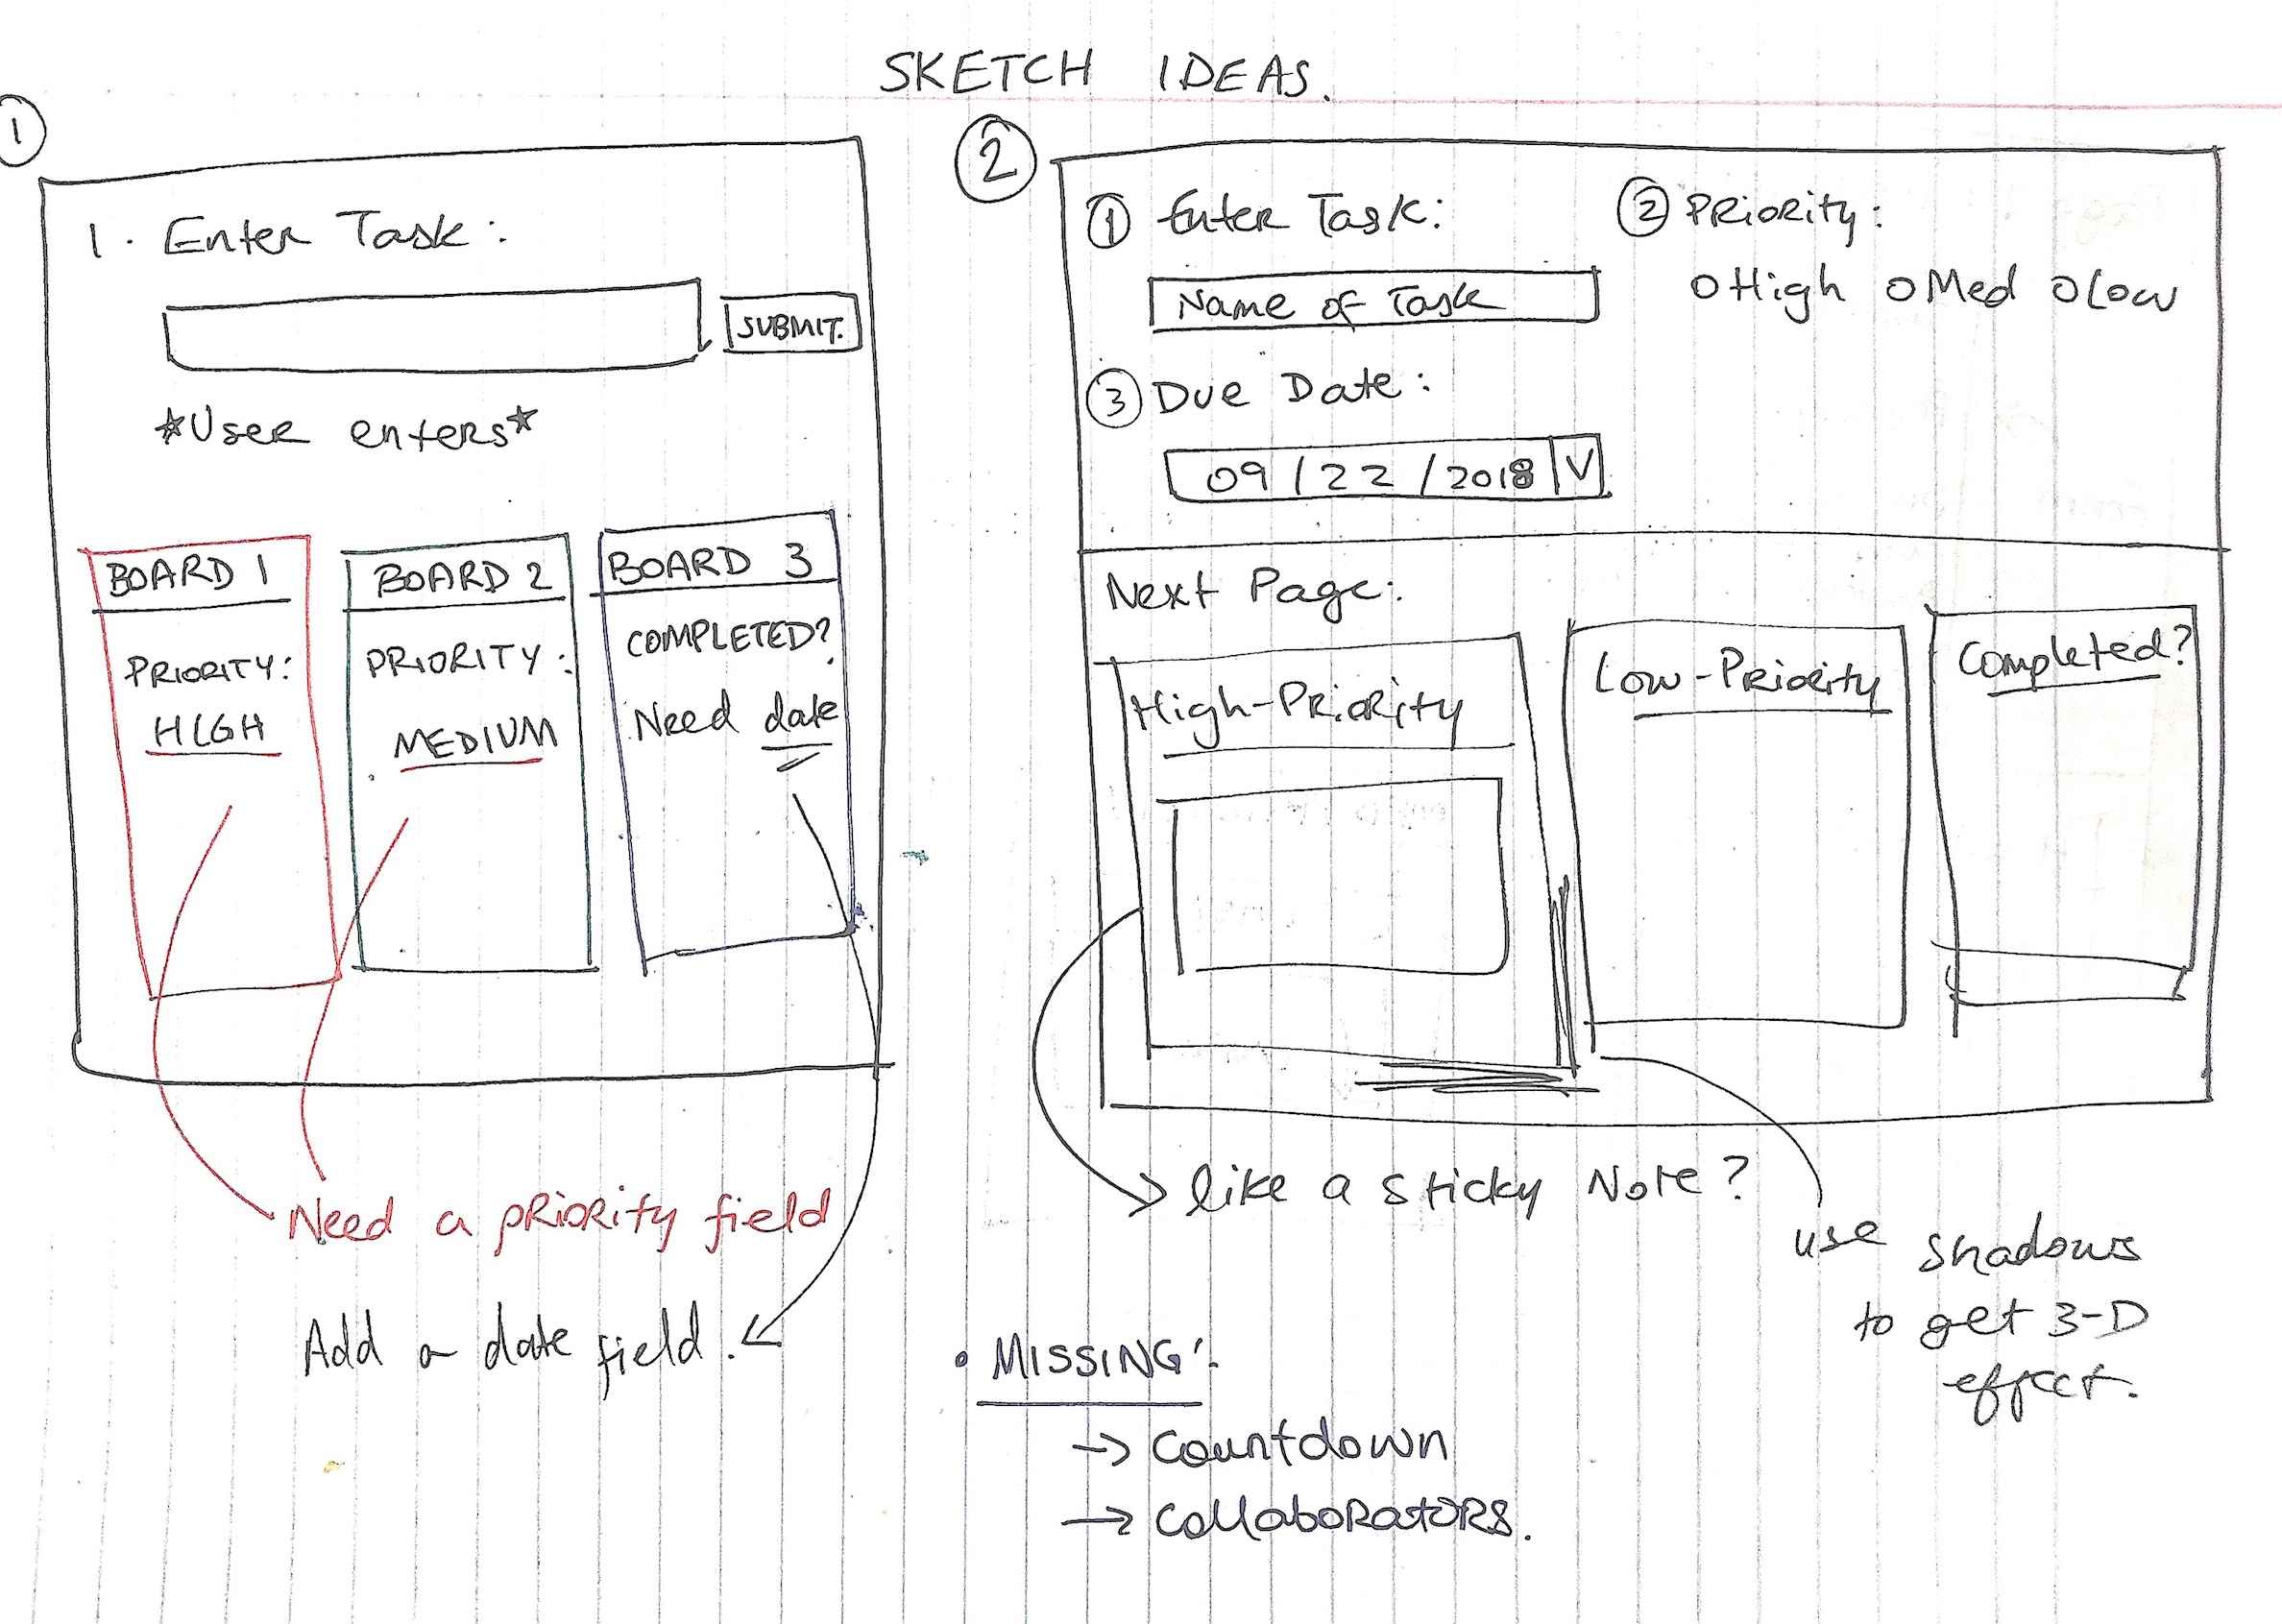 SKETCH IDEAS.
1
1. Enter Task:
SUBMIT.
*User enters*
BOARD 1
PRIORITY:
HIGH
BOARD 2
PRIORITY:
MEDIUM
BOARD 3
COMPLETED?
Need date
Need a priority field
Add a date field.
2
1 Enter Task:
Name of Task
2 Priority:
O High O Med O Low
3 Due Date:
09/22/2018 V
Next Page:
High-Priority
Low-Priority
Completed?
like a sticky Note?
use shadows
to get 3-D
effect.
• MISSING:-
→ Countdown
→ Collaborators.